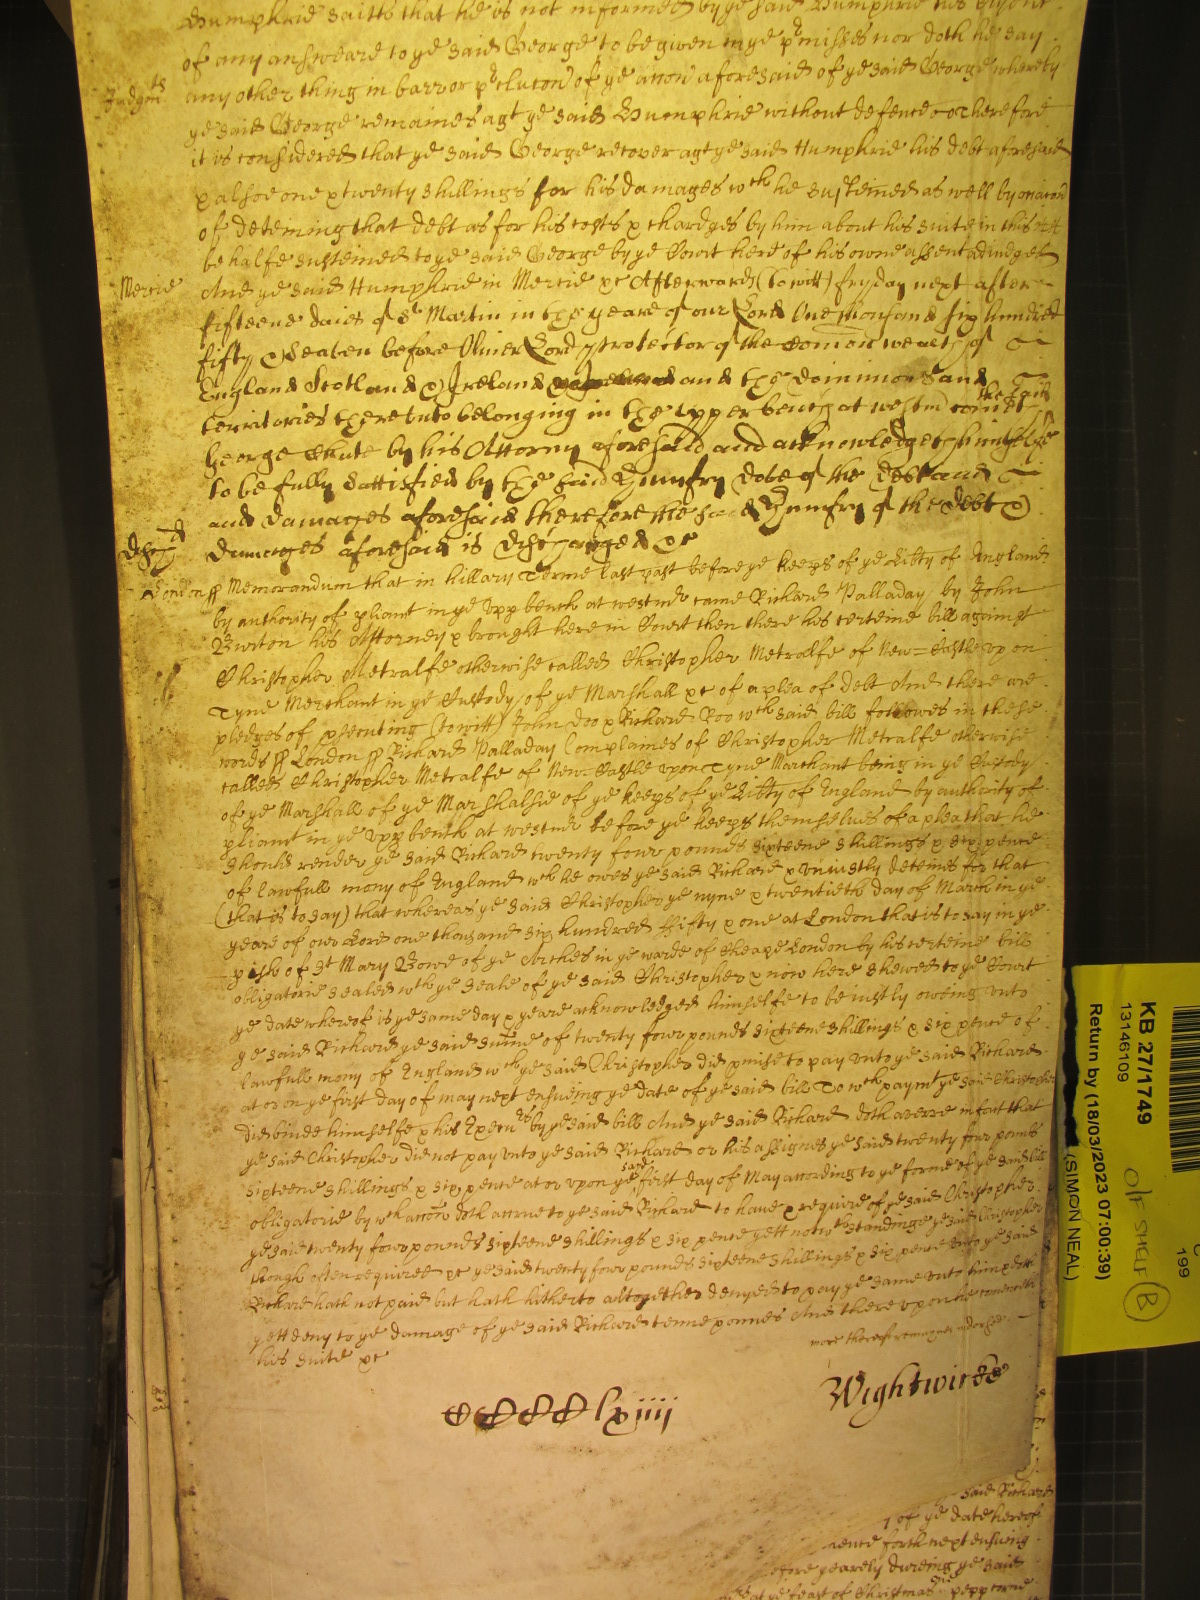 Humphrie saith that he is not informed by ye said Humphrie his Clyent
of any answeare to ye said George to be given in ye pmisses nor doth he say
Judgmts any other thing in barr or pclucon of ye accon aforesaid of ye said George whereby
ye said George remaines agt ye said Humphrie without defence Therefore
it is considered that ye said George recover agt ye said Humphrie his debt aforesaid
& alsoe one & twenty shillings for his damages wch he susteined as well by occacon
of deteining that debt as for his costs & chardges by him about his suite in this
behalfe susteined to ye said George by ye Court here of his owne assent adiudged
Mercie And ye said Humphrie in Mercie &c Afterwards (to witt) fryday next after
fifteene daies of St Martin in the yeare of our Lord One thousand six hundred
fifty & seaven before Oliver Lord protector of the Comon wealth of
England Scotland & Ireland and the dominions and
territories thereunto belonging in the upper bench at westmr cometh the said
George Chute by his Attorny aforesaid and acknowledgeth himselfe
to be fully sattisfied by the said Humfry Dobe of the debt and
and damages aforesaid therefore the said Humfry of the debt &
Dischd damages aforesaid is discharged &c
London ss Memorandum that in hillary Terme last past before ye keeps of ye Libty of England
by authority of pliamt in ye upp bench at westmr came Richard Palladay by John
Burton his Attorney & brought here in Court then there his certeine bill against
Christopher Metcalfe otherwise called Christopher Metcalfe of New=Castle upon
Tyne Merchant in ye Custody of ye Marshall &c of a plea of debt And there are
pledges of psecuting (to witt) John Doo & Richard Roo wch said bill followes in these
words ss London ss Richard Palladay Complaines of Christopher Metcalfe otherwise
called Christopher Metcalfe of New=Castle upon Tyne Marchant being in ye Custody
of ye Marshall of ye Marshalsie of ye keeps of ye Libty of England by authority of
pliamt in ye upp bench at westmr before ye keeps themselves of a plea that he
should render ye said Richard twenty fower pounds sixteene shillings & six pence
of lawfull mony of England wch he owes ye said Richard & uniustly deteines for that
(that is to say) that whereas ye said Christopher ye nyne & twentieth day of March in ye
yeare of our Lord one thousand six hundred fifty & one at London that is to say in ye
pish of St Mary Bowe of ye Arches in ye warde of Cheape London by his certeine bill
obligatorie sealed wth ye seale of ye said Christopher & now here shewed to ye Court
ye date whereof is ye same day & yeare acknowledged himselfe to be iustly oweing unto
ye said Richard ye said sume of twenty fower pounds sixteene shillings & six pence of
lawfull mony of England wch ye said Christopher did pmise to pay unto ye said Richard
at or on ye first day of may next ensueing ye date of ye said bill To wch paymt ye said Christopher
did binde himselfe & his Execurs by ye said bill And ye said Richard doth averre in fact that
ye said Christopher did not pay unto ye said Richard or his assignes ye said twenty four pounds
sixteene shillings & six pence at or upon ye said first day of May according to ye forme of ye said bill
obligatorie by wch accon doth accrue to ye said Richard to have & require of ye said Christopher
ye said twenty fower pounds sixteene shillings & six pence yett notwthstandinge ye said Christopher
though often required &c ye said twenty fower pounds sixteene shillings & six pence unto ye said
Richard hath not paid but hath hitherto altogether denyed to pay ye same unto him & doth
yett deny to ye damage of ye said Richard tenne pounds And thereupon he
his suite &c
more thereof remaynes indorsed
Wightwicke
CCCC lxiiii
said Richard
of ye date hereof
hence forth next ensueing
before yearely dureing ye said
at ye feast of Christmas pepp corne
KB 27/1749
13146109
Return by (18/03/2023 07:00:39)
(SIMON NEAL)
199
O/F SHELF
B